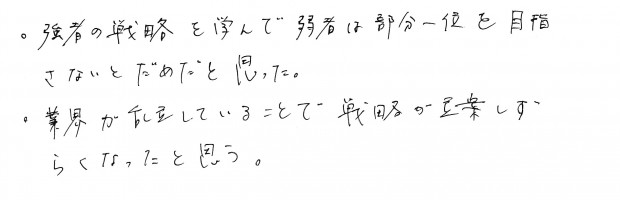 。強者の戦略を学んで弱者は部分一位を目指
さないとだめだと思った。
・業界が乱立していることで戦略が立案しず
らくなったと思う。